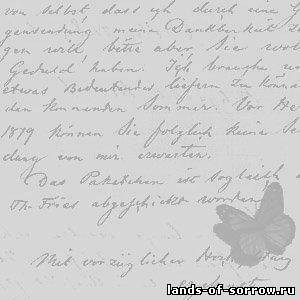 von selbst, dass ich durch eine
gensendung meine Dankbarkeit
gen will bitte aber Sie wol
Geduld haben. Ich brauche
etwas Bedeutendes liefern zu könne
den kommenden Sommer. Vor He
1879 können Sie folglich keine Se
dung von mir erwarten.
Das Paketchen ist sogleich
Th. Fries abgeschickt worden
Mit vorzüglicher
lands-of-sorrow.ru